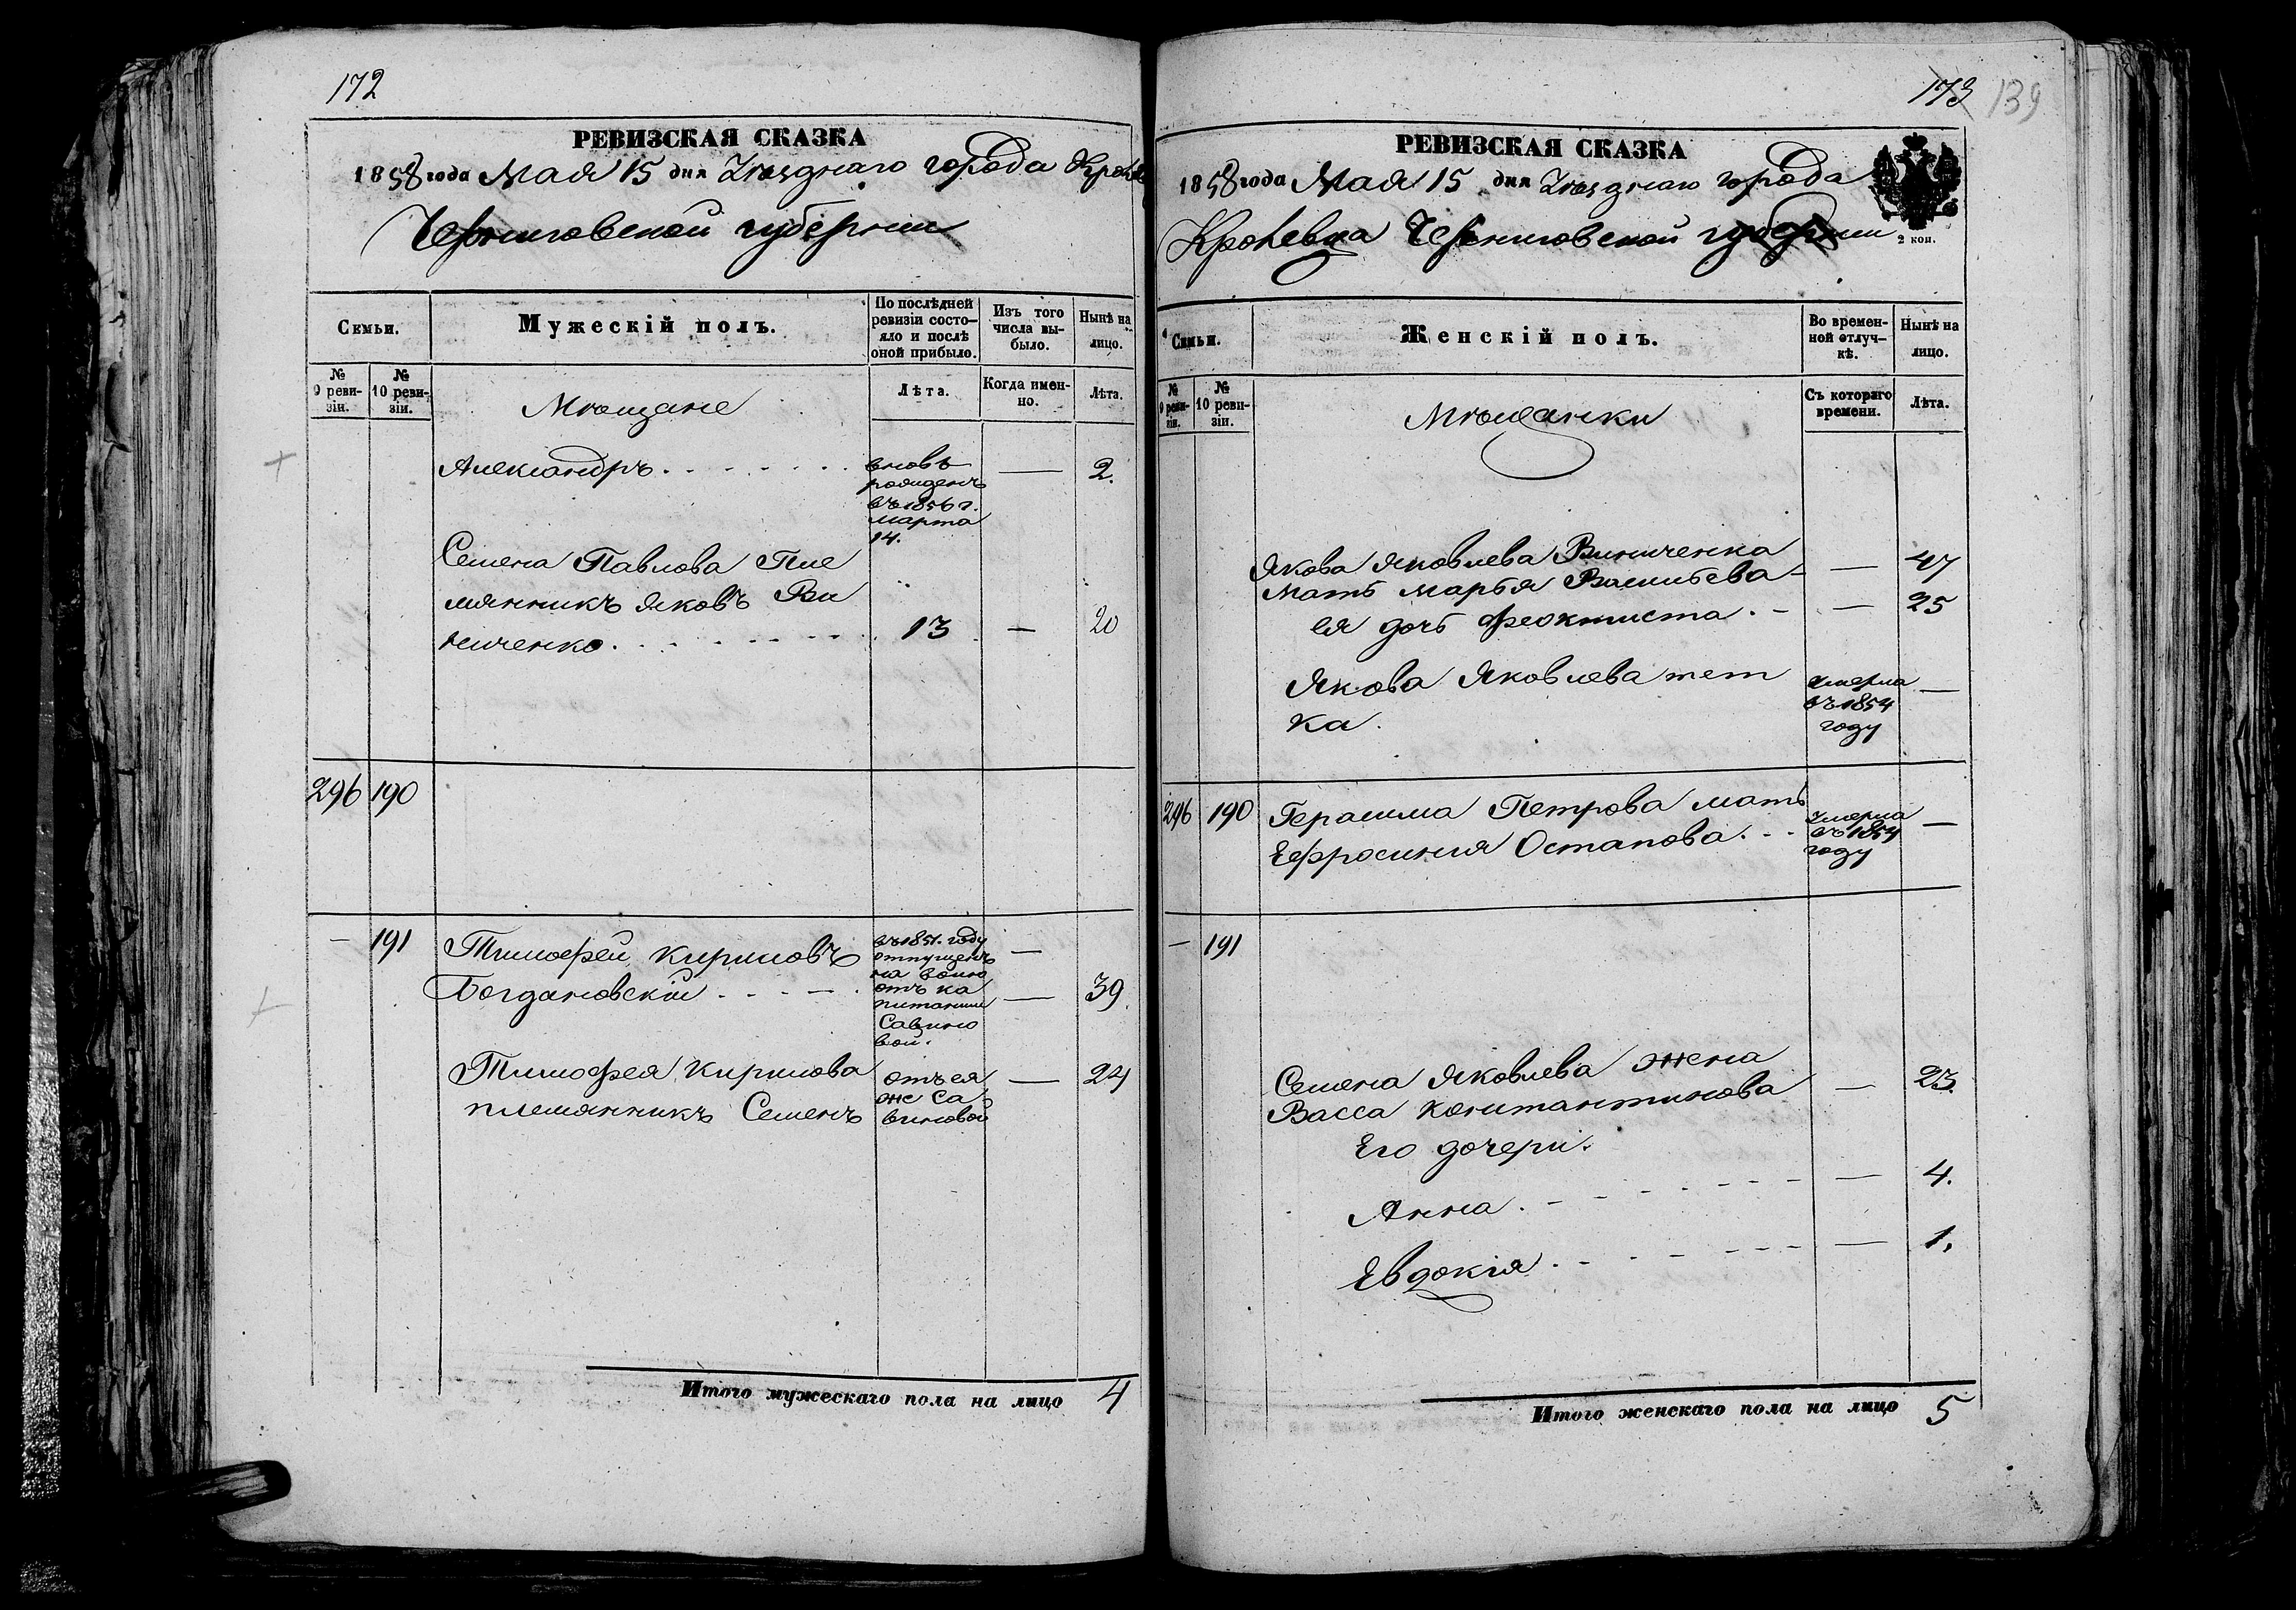 172
РЕВИЗСКАЯ СКАЗКА
1858 года Мая 15 дня Уѣзднаго города Кролев
Черниговской губерніи
Семьи.
Мужескій полъ.
По послѣдней ревизіи состояло и послѣ оной прибыло.
Изъ того числа выбыло.
Нынѣ на лицо.
№ 9 ревизіи.
№ 10 ревизіи.
Мѣщане
Лѣта.
Когда именно.
Лѣта.
Александръ . . . . . . . вновь — 2.
рожденъ
въ 1856 г.
марта
14.
Семена Павлова Пле
мянникъ Яковъ Ви
ниченко . . . . . . . 13 — 20
296 190
— 191 Тимофей Кириловъ въ 1851. году —
отпущенъ
на волю
Богдановскій . . . . отъ ка — 39
питанши
Савино
вой.
Тимофея Кирилова отъ ея — 24
же Са
племянникъ Семенъ виновой
Итого мужескаго пола на лицо 4
173 139
РЕВИЗСКАЯ СКАЗКА
1858 года Мая 15 дня Уѣзднаго города
Кролевца Черниговской губерніи
2 коп.
Семьи.
Женскій полъ.
Во временной отлучкѣ.
Нынѣ на лицо.
№ 9 ревизіи.
№ 10 ревизіи.
Мѣщанки
Съ котораго времени.
Лѣта.
Якова Яковлева Виниченка
мать Марья Васильева — — 47
ея дочь Феоктиста . — — 25
Якова Яковлева тет умерла —
въ 1854
ка . году
296 190 Герасима Петрова мать умерла —
въ 1854
Ефросинія Остапова . . . году
— 191
Семена Яковлева жена
Васса Константинова — 23.
Его дочери.
Анна . . . . . . . — 4.
Евдокія . . . . . . — 1.
Итого женскаго пола на лицо 5